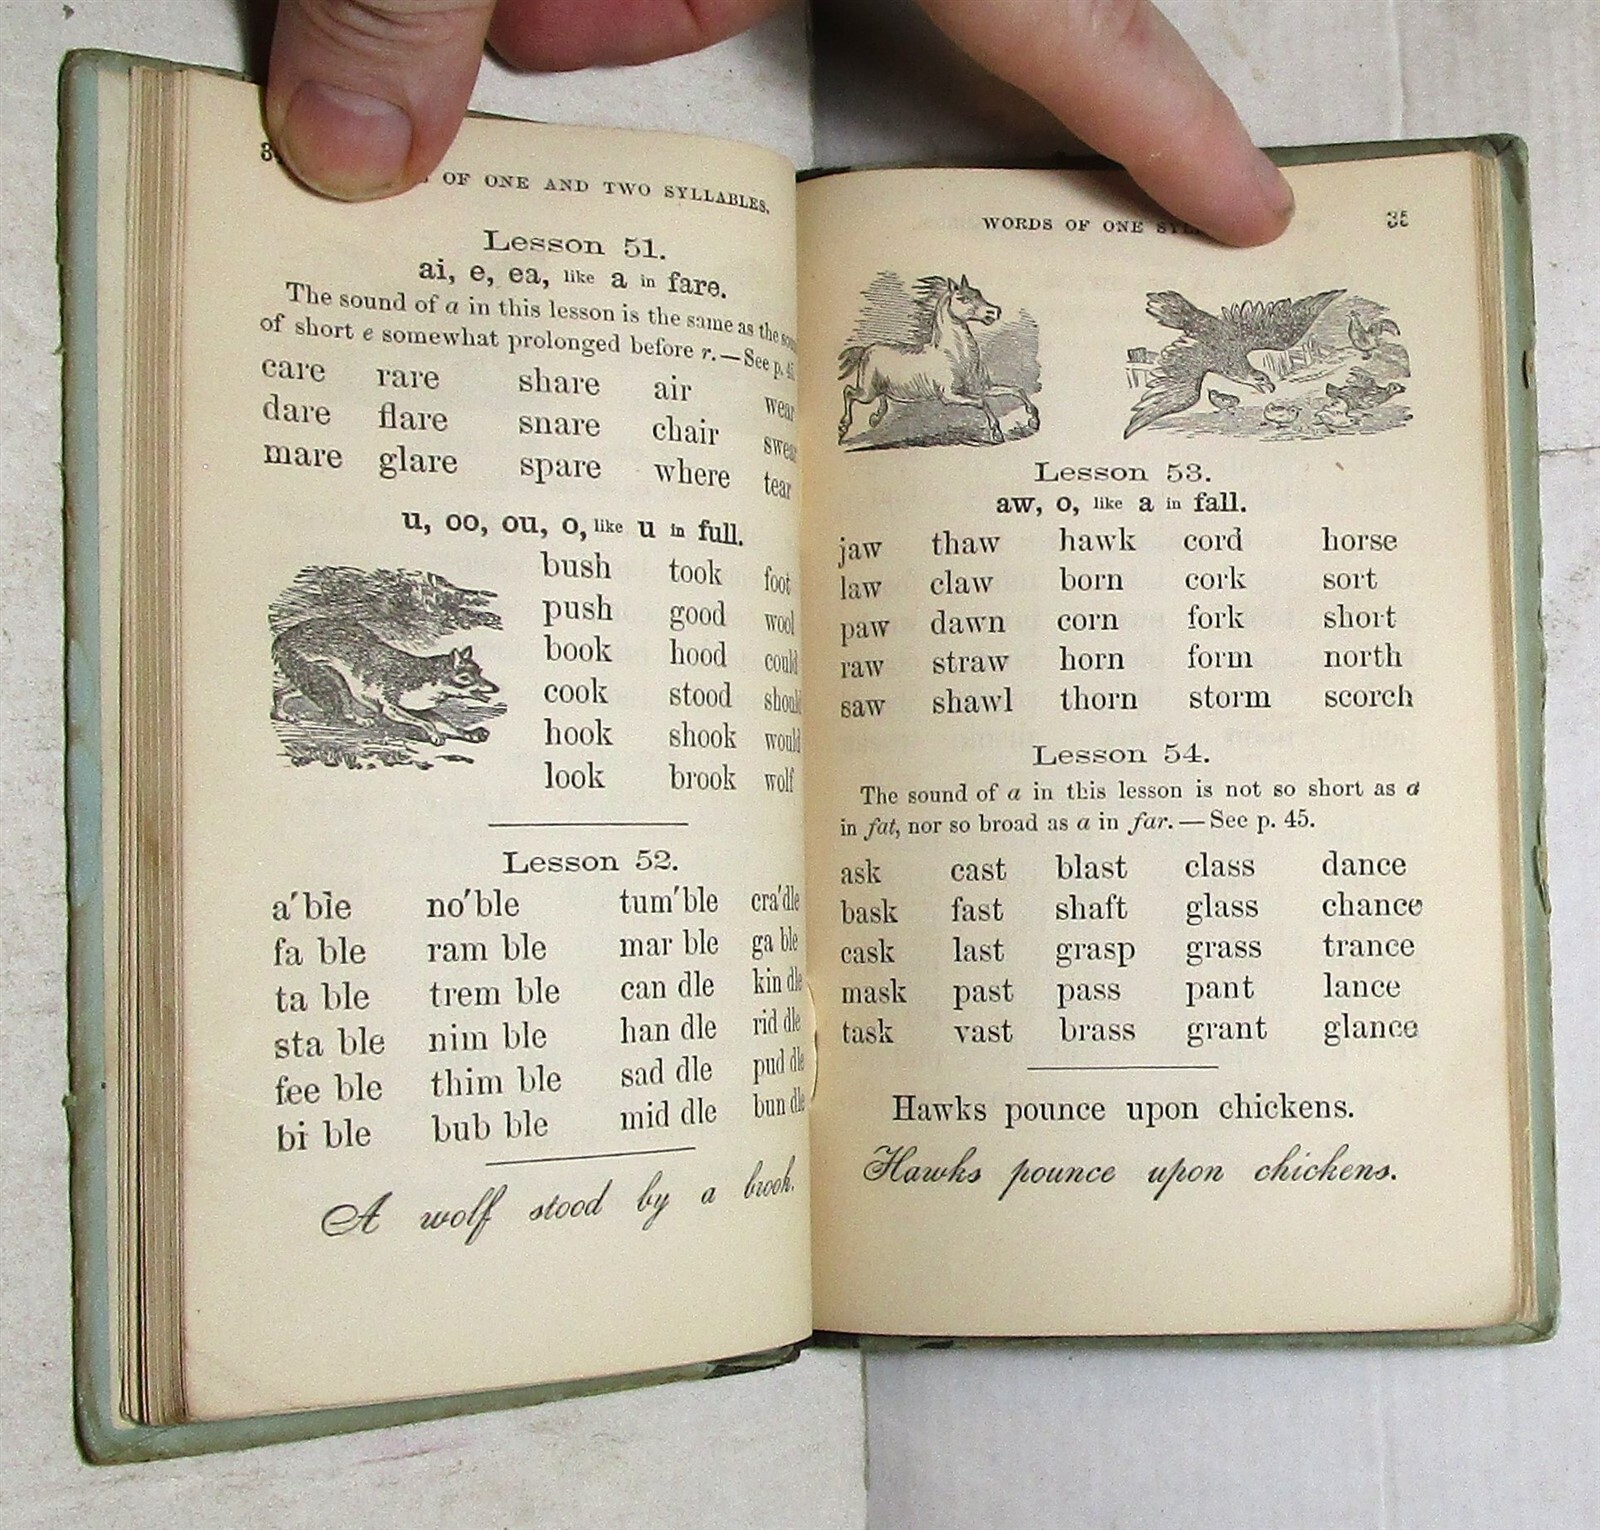 OF ONE AND TWO SYLLABLES.
Lesson 51.
ai, e, ea, like a in fare.
The sound of a in this lesson is the same as the
of short e somewhat prolonged before r.—See p.
care rare share air wear
dare flare snare chair swear
mare glare spare where tear
u, oo, ou, o, like u in full.
bush took foot
push good wool
book hood could
cook stood should
hook shook would
look brook wolf
Lesson 52.
a'ble no'ble tum'ble cra'dle
fa ble ram ble mar ble ga ble
ta ble trem ble can dle kin dle
sta ble nim ble han dle rid dle
fee ble thim ble sad dle pud dle
bi ble bub ble mid dle bun dle
A wolf stood by a brook.
WORDS OF ONE 35
Lesson 53.
aw, o, like a in fall.
jaw thaw hawk cord horse
law claw born cork sort
paw dawn corn fork short
raw straw horn form north
saw shawl thorn storm scorch
Lesson 54.
The sound of a in this lesson is not so short as a
in fat, nor so broad as a in far.—See p. 45.
ask cast blast class dance
bask fast shaft glass chance
cask last grasp grass trance
mask past pass pant lance
task vast brass grant glance
Hawks pounce upon chickens.
Hawks pounce upon chickens.